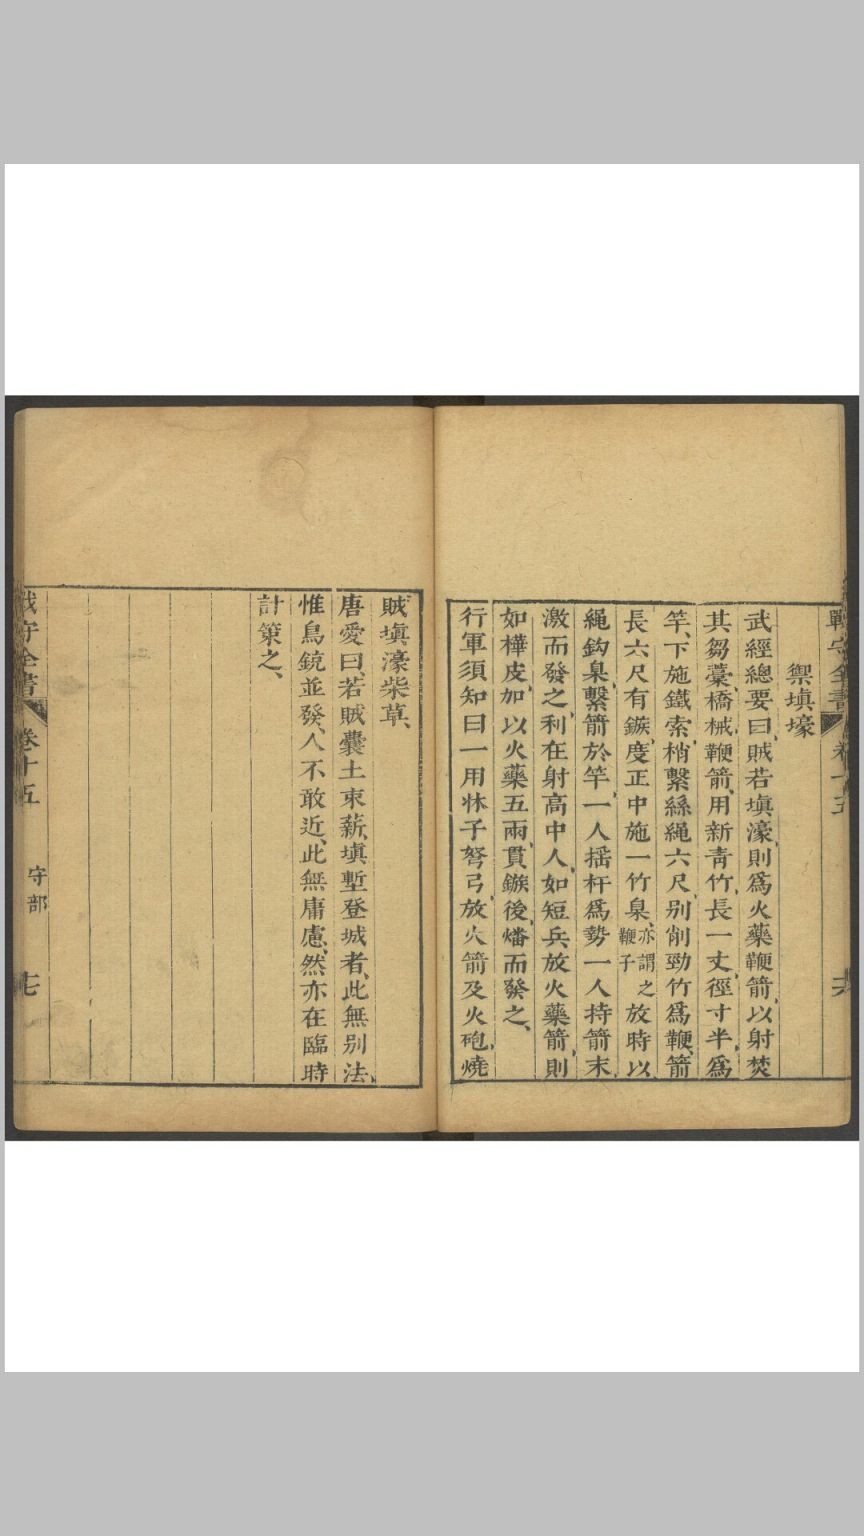 戰守全書
禦塡壕
武經總要曰、賊若塡濠、則爲火藥鞭箭、以射焚
其芻藁、橋械、鞭箭、用新靑竹、長一丈、徑寸半、爲
竿、下施鐵索、梢繫絲繩六尺、别削勁竹爲鞭、箭
長六尺有鏃、度正中施一竹臬、亦謂之鞭子放時以
繩鈎臬、繫箭於竿、一人搖杆爲勢、一人持箭末、
激而發之、利在射高中人、如短兵放火藥箭、則
如樺皮、加以火藥五兩、貫鏃後、燔而發之、
行軍須知曰、一用牀子弩弓、放火箭及火砲、燒
賊塡濠柴草、
唐愛曰、若賊囊土束薪、塡塹登城者、此無别法、
惟鳥銃並發、人不敢近、此無庸慮、然亦在臨時
計策之、
戰守全書 卷十五 守部 十七